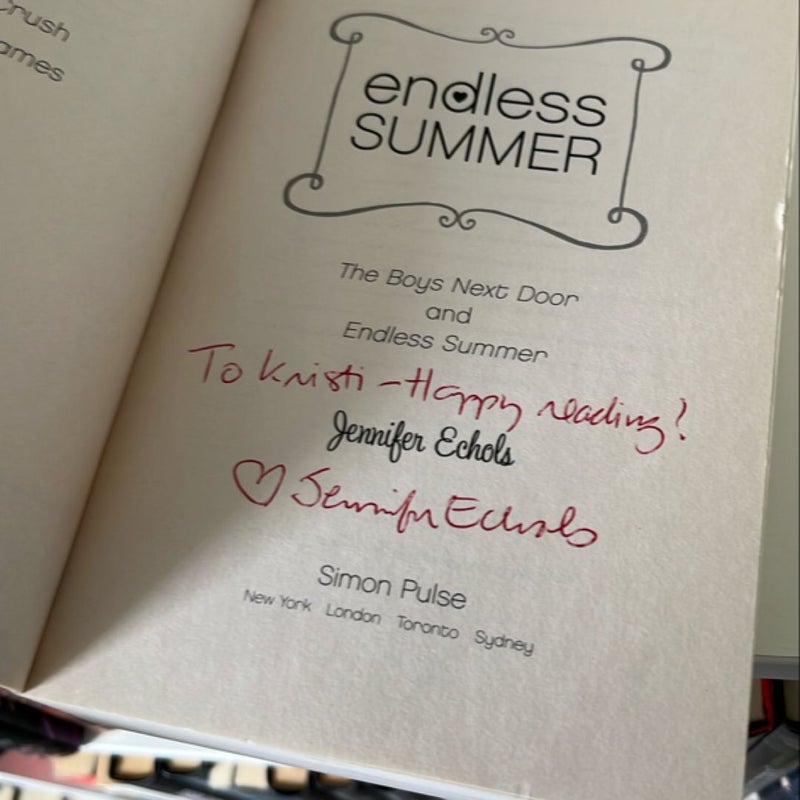 Crush
ames
endless
SUMMER
The Boys Next Door
and
Endless Summer
To Kristi - Happy reading!
Jennifer Echols
♡ Jennifer Echols
Simon Pulse
New York London Toronto Sydney